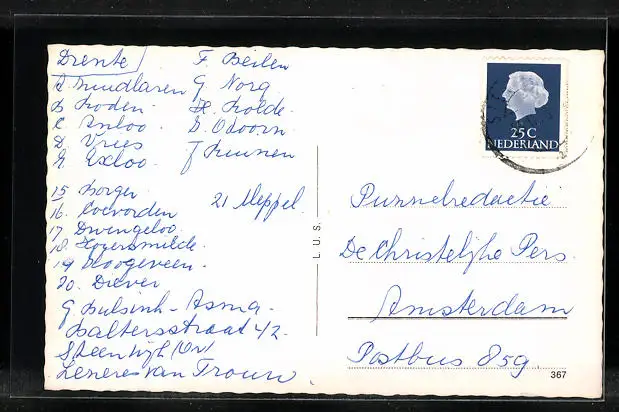 Drente
A Zuidlaren
B Roden
C Anloo
D. Vries
E Exloo
F. Beilen
G Norg
H. Rolde
I. Odoorn
J Ruinen
15 Borger
16. Coevorden
17 Dwingeloo
18. Hoyersmilde
19 Hoogeveen
20. Diever
21 Meppel
G. Bulsink-Asma
Baltersstraat 42
Steenwijk (Ov)
Lezeres van Trouw
L. U. S.
25 C
NEDERLAND
Puzzelredactie
De Christelijke Pers.
Amsterdam
Postbus 859
367